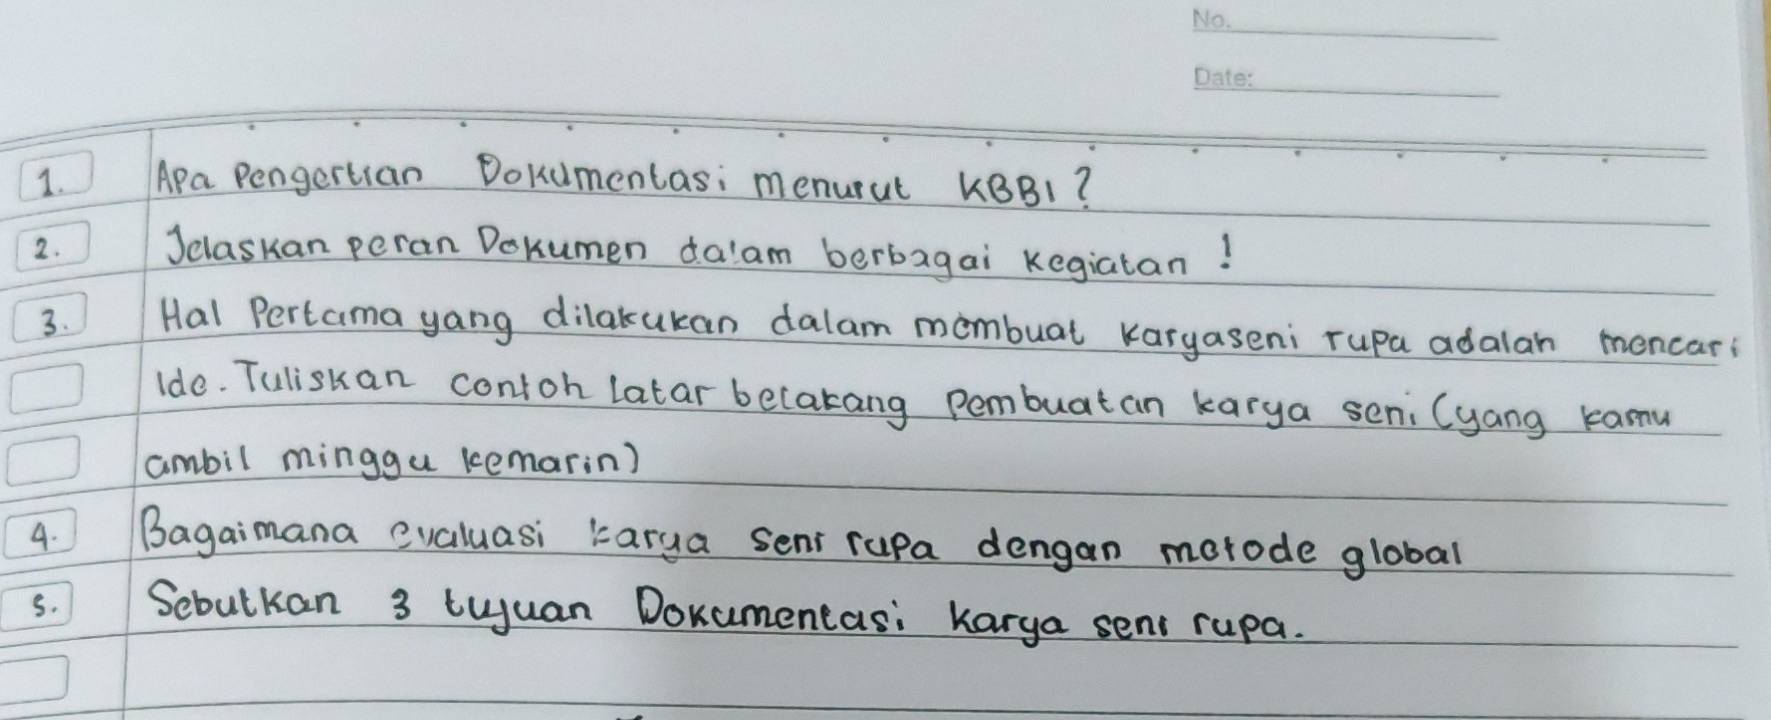 No.
Date:
1. Apa Pengertian Dokumentasi menurut KBBI?
2. Jelaskan peran Dokumen dalam berbagai kegiatan!
3. Hal Pertama yang dilakukan dalam membuat karyaseni rupa adalah mencari
Ide. Tuliskan contoh latar belakang pembuatan karya seni (yang kamu
ambil minggu kemarin)
4. Bagaimana evaluasi karya seni rupa dengan metode global
5. Sebutkan 3 tujuan Dokumentasi karya seni rupa.